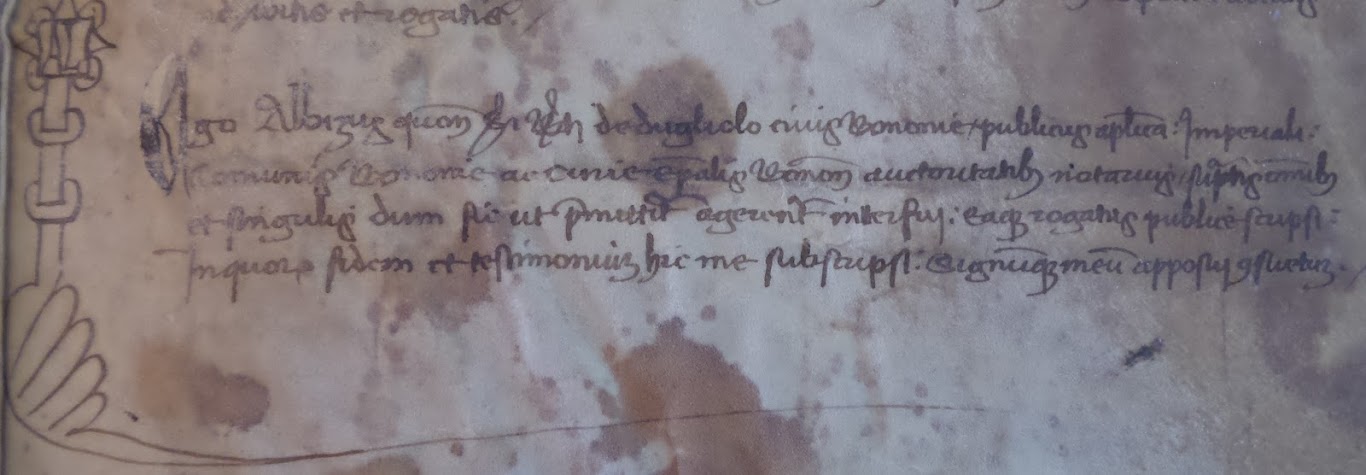 et rogatis.
Ego Albizus quon de dugliolo civis Bononie publicus aplica: Imperiali:
Comunis Bononie ac Curie epalis Bonon auctoritatib notarius, suptis omib
et singulis dum sic ut pmittit agerent interfuj: Eaq rogatus publice scripsi:
In quor fidem et testimonium hic me subscripsi: Signuq meu apposuj 9suetuz.